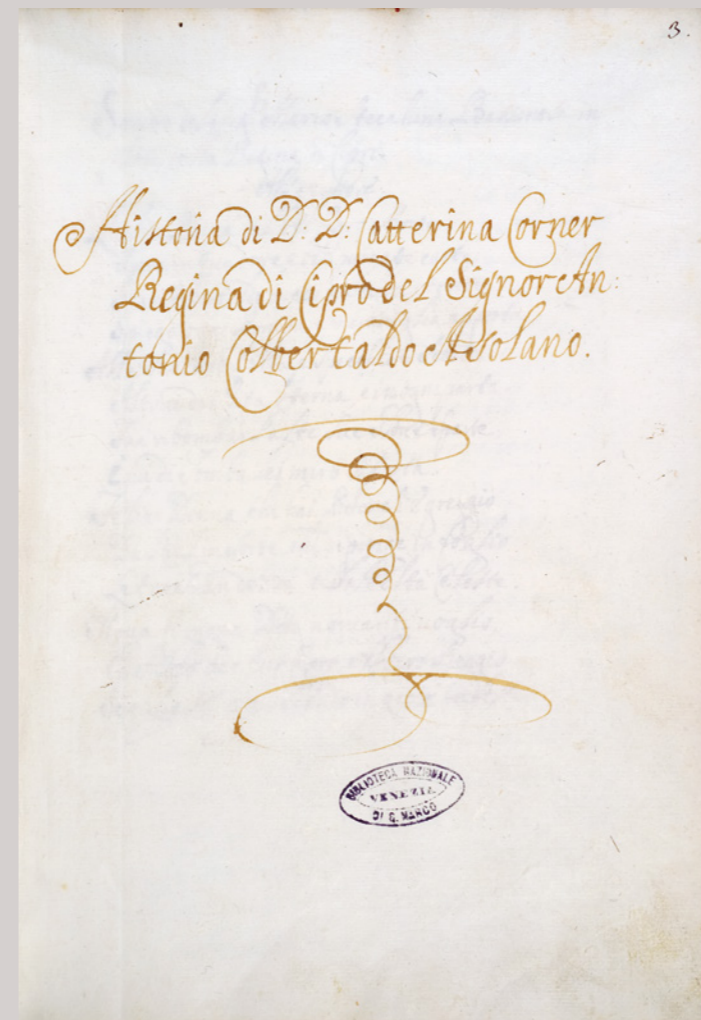 3.
Historia di D: D: Catterina Corner
Regina di Cipro del Signor An:
tonio Colbertaldo Asolano.
BIBLIOTECA NAZIONALE
VENEZIA
DI S. MARCO